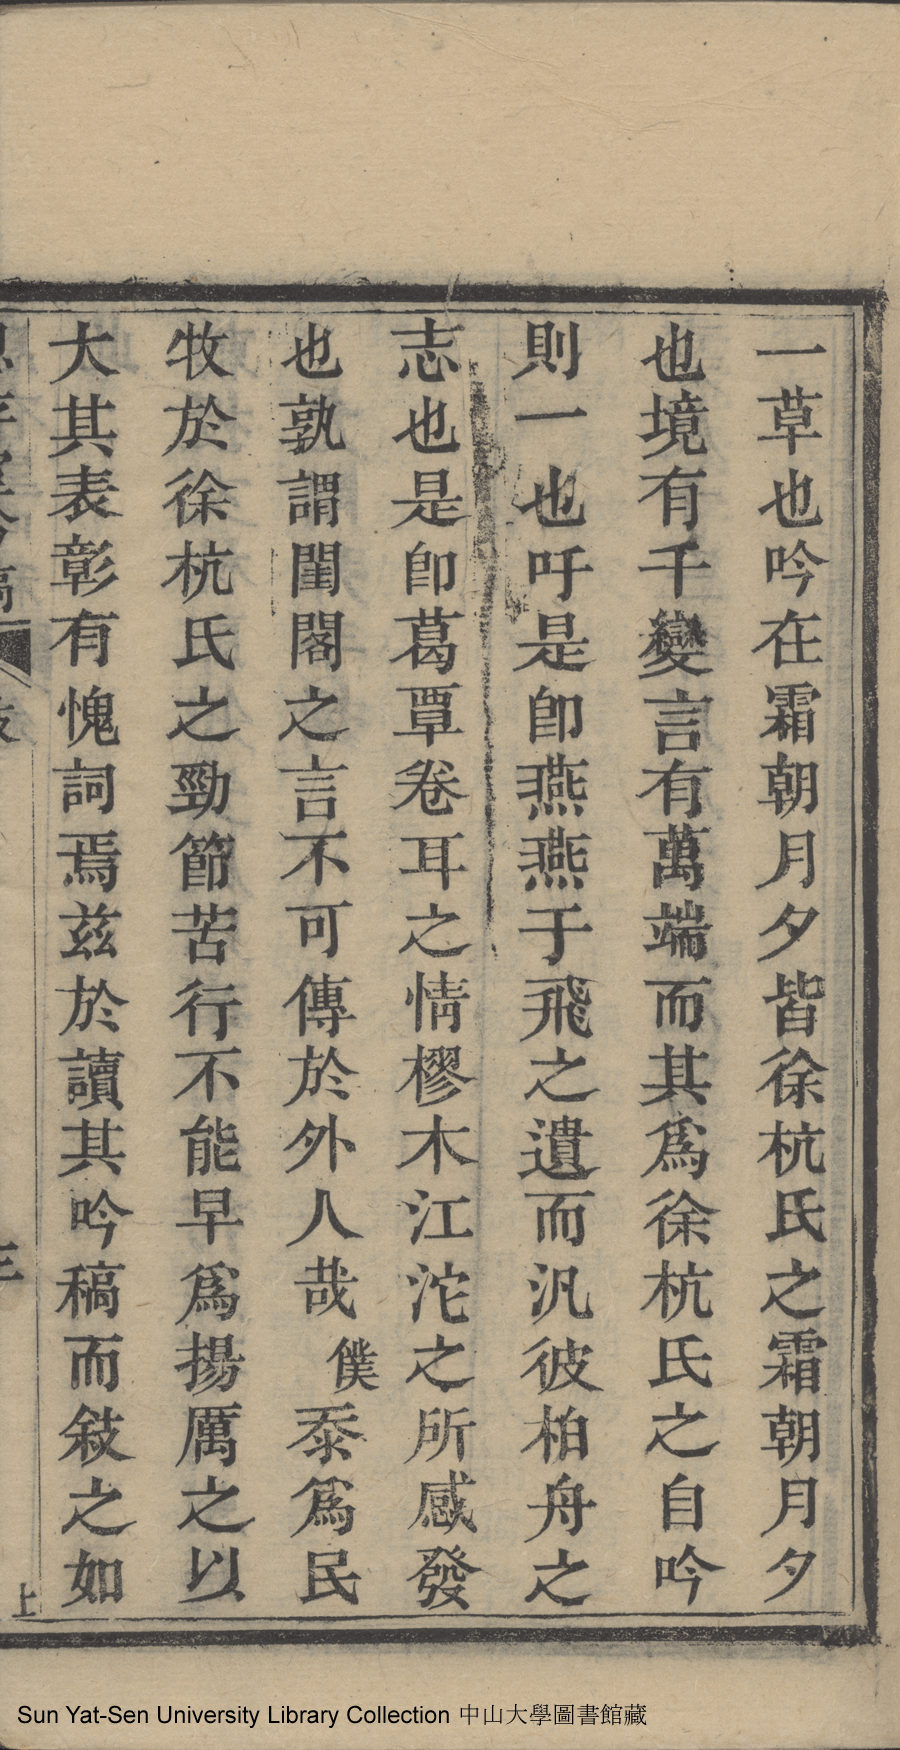 一草也吟在霜朝月夕皆徐杭氏之霜朝月夕
也境有千變言有萬端而其爲徐杭氏之自吟
則一也吁是卽燕燕于飛之遺而汎彼柏舟之
志也是卽葛覃卷耳之情樛木江沱之所感發
也孰謂閨閣之言不可傳於外人哉僕忝爲民
牧於徐杭氏之勁節苦行不能早爲揚厲之以
大其表彰有愧詞焉茲於讀其吟稿而敍之如
三
上
Sun Yat-Sen University Library Collection 中山大學圖書館藏